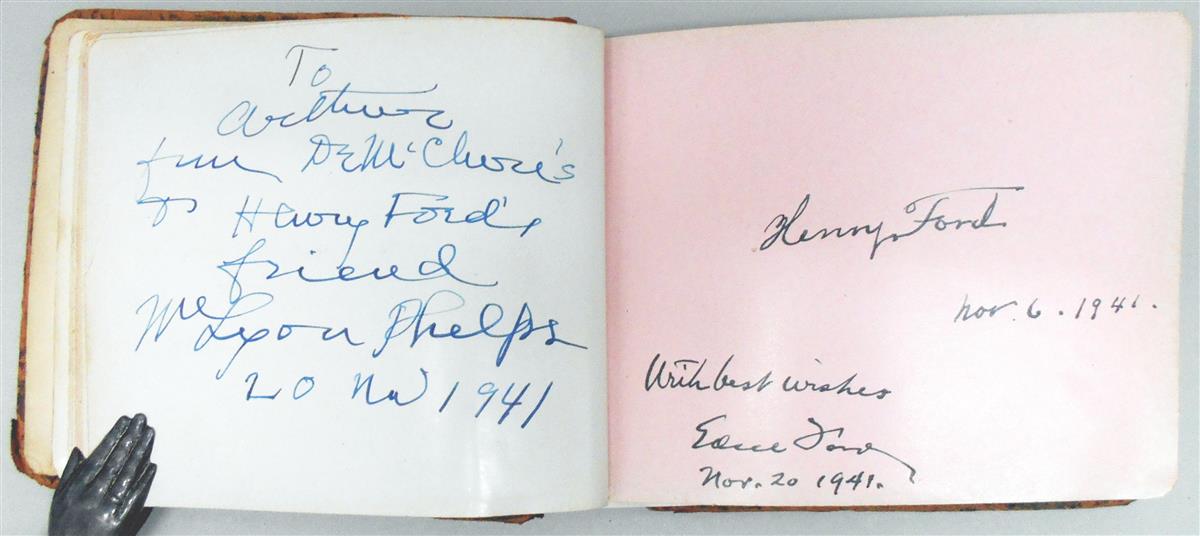 To
Arthur
from Dr McClure's
Henry Ford's
friend
Wm Lyon Phelps
20 Nov 1941
Henry Ford
Nov. 6. 1941.
With best wishes
Edsel Ford
Nov. 20 1941.